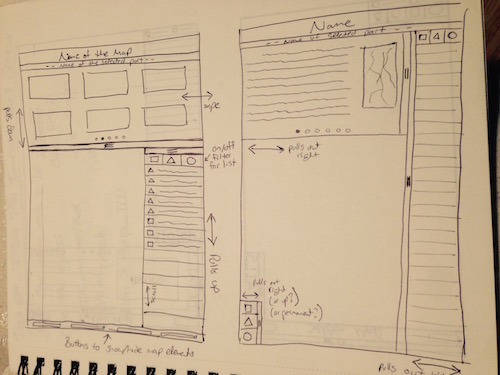 Name of the Map
-- Name of the selected part --
pulls down
on/off
filter
for list
Pulls up
Buttons to
map elements
Name
-- Name of selected part --
pulls out
right
pulls out
right
(or up?)
(or permanent?)
Pulls out